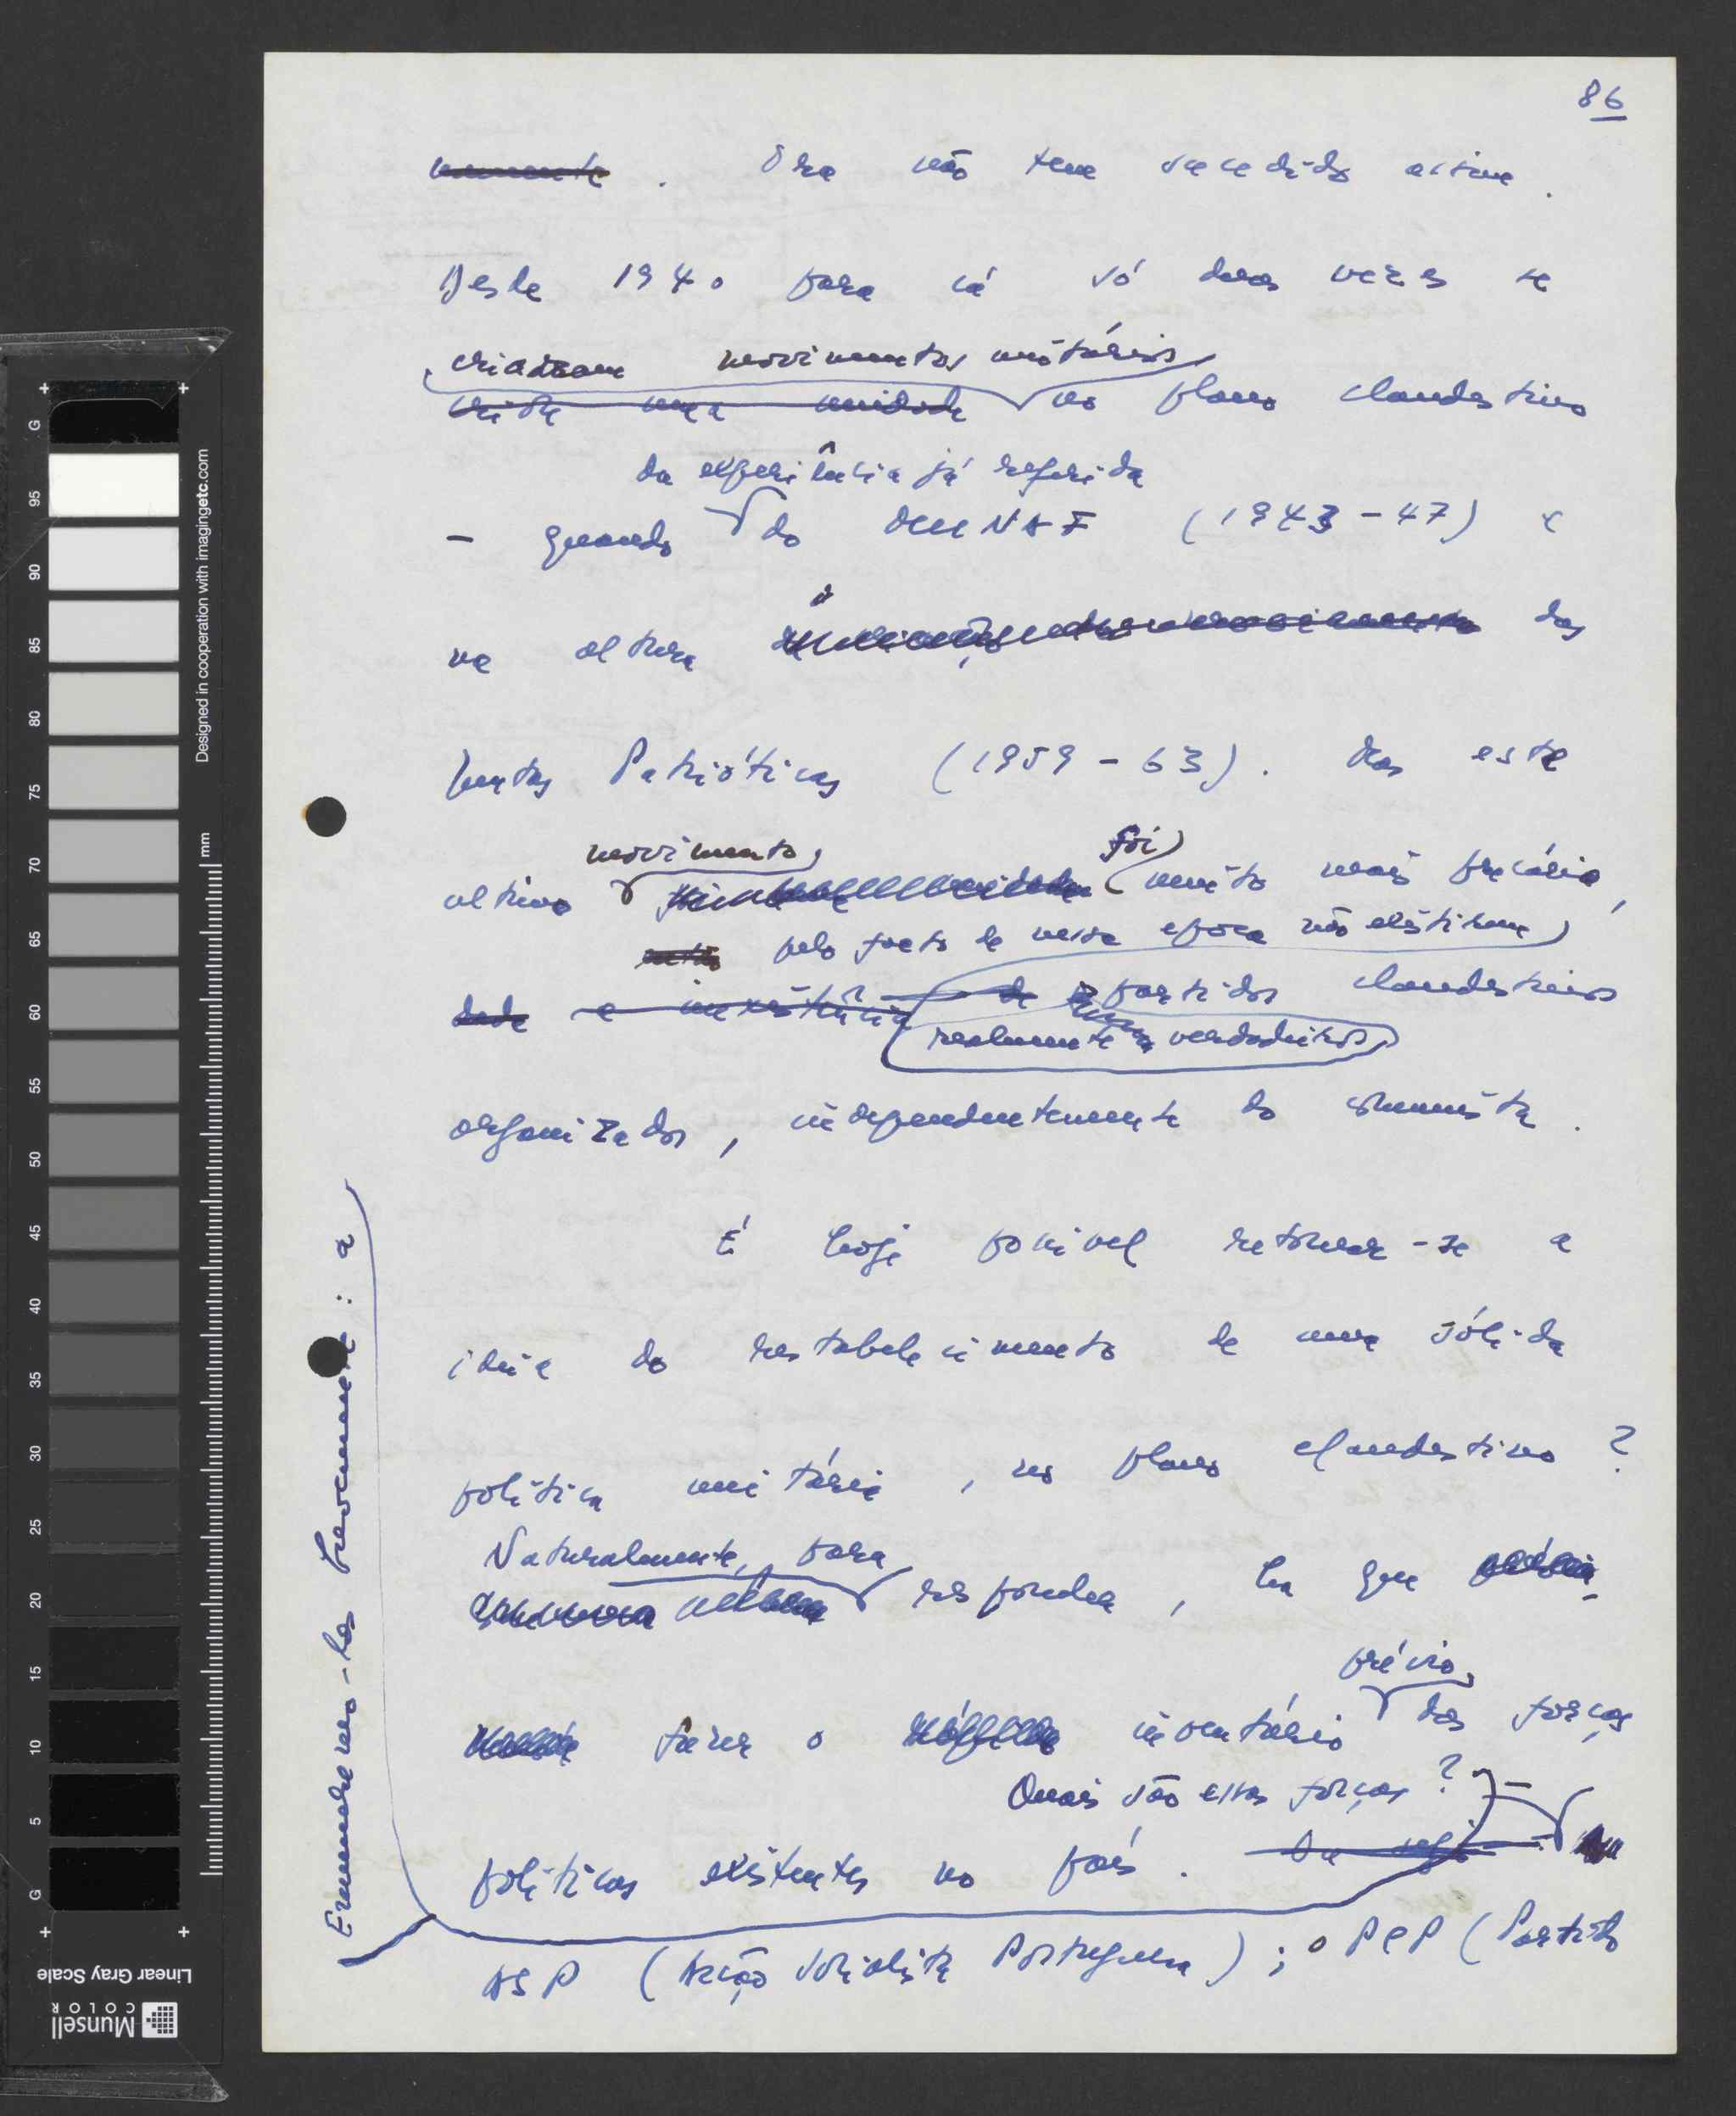 86
. Ora não tem sucedido assim.
Desde 1940 para cá só duas vezes se
criaram movimentos unitários
existe uma unidade no plano clandestino
da experiência já referida
- quando do MUNAF (1943-47) e
na altura das
Juntas Patrióticas (1959-63). Mas este
movimento foi
ultimo muito mais precário,
pelo facto de nessa epoca não existirem
dada a inexistência de partidos clandestinos
realmente verdadeiros
organizados, independentemente do comunista.
É hoje possivel retomar-se a
ideia do restabelecimento de uma sólida
politica unitária, no plano clandestino?
Naturalmente, para
responder, há que
prévio
fazer o inventário das forças
Quais são essas forças?
politicas existentes no país.
ASP (Acção Socialista Portuguesa); o PCP (Partido
Enumeremo-las brevemente: a
Designed in cooperation with imagingetc.com
mm
G 95 90 85 80 75 70 65 60 55 50 45 40 35 30 25 20 15 10 5 G
Linear Gray Scale
Munsell
COLOR